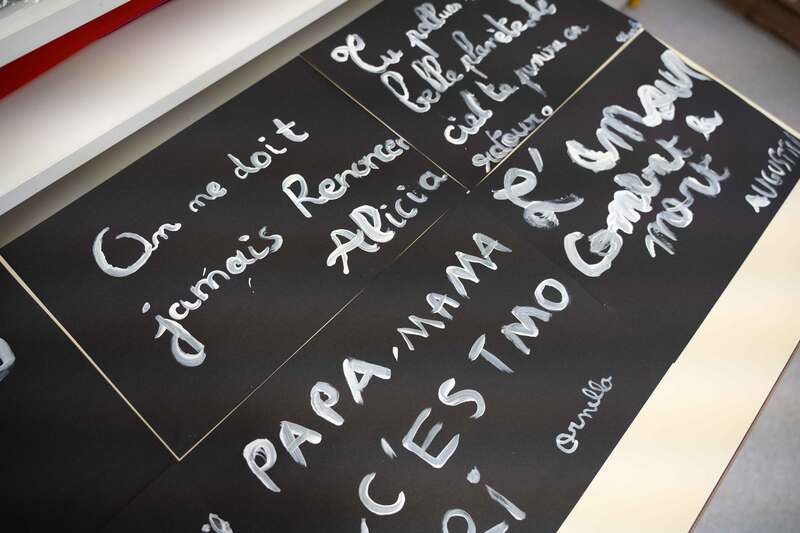 On me doit
jamais Renoncer
Alicia
Tu pollues
belle planète le
ciel te punira en
retour.
L'amour
Combat la
mort
AUGUSTIN
PAPA, MAMA
C'EST MO
Ornella